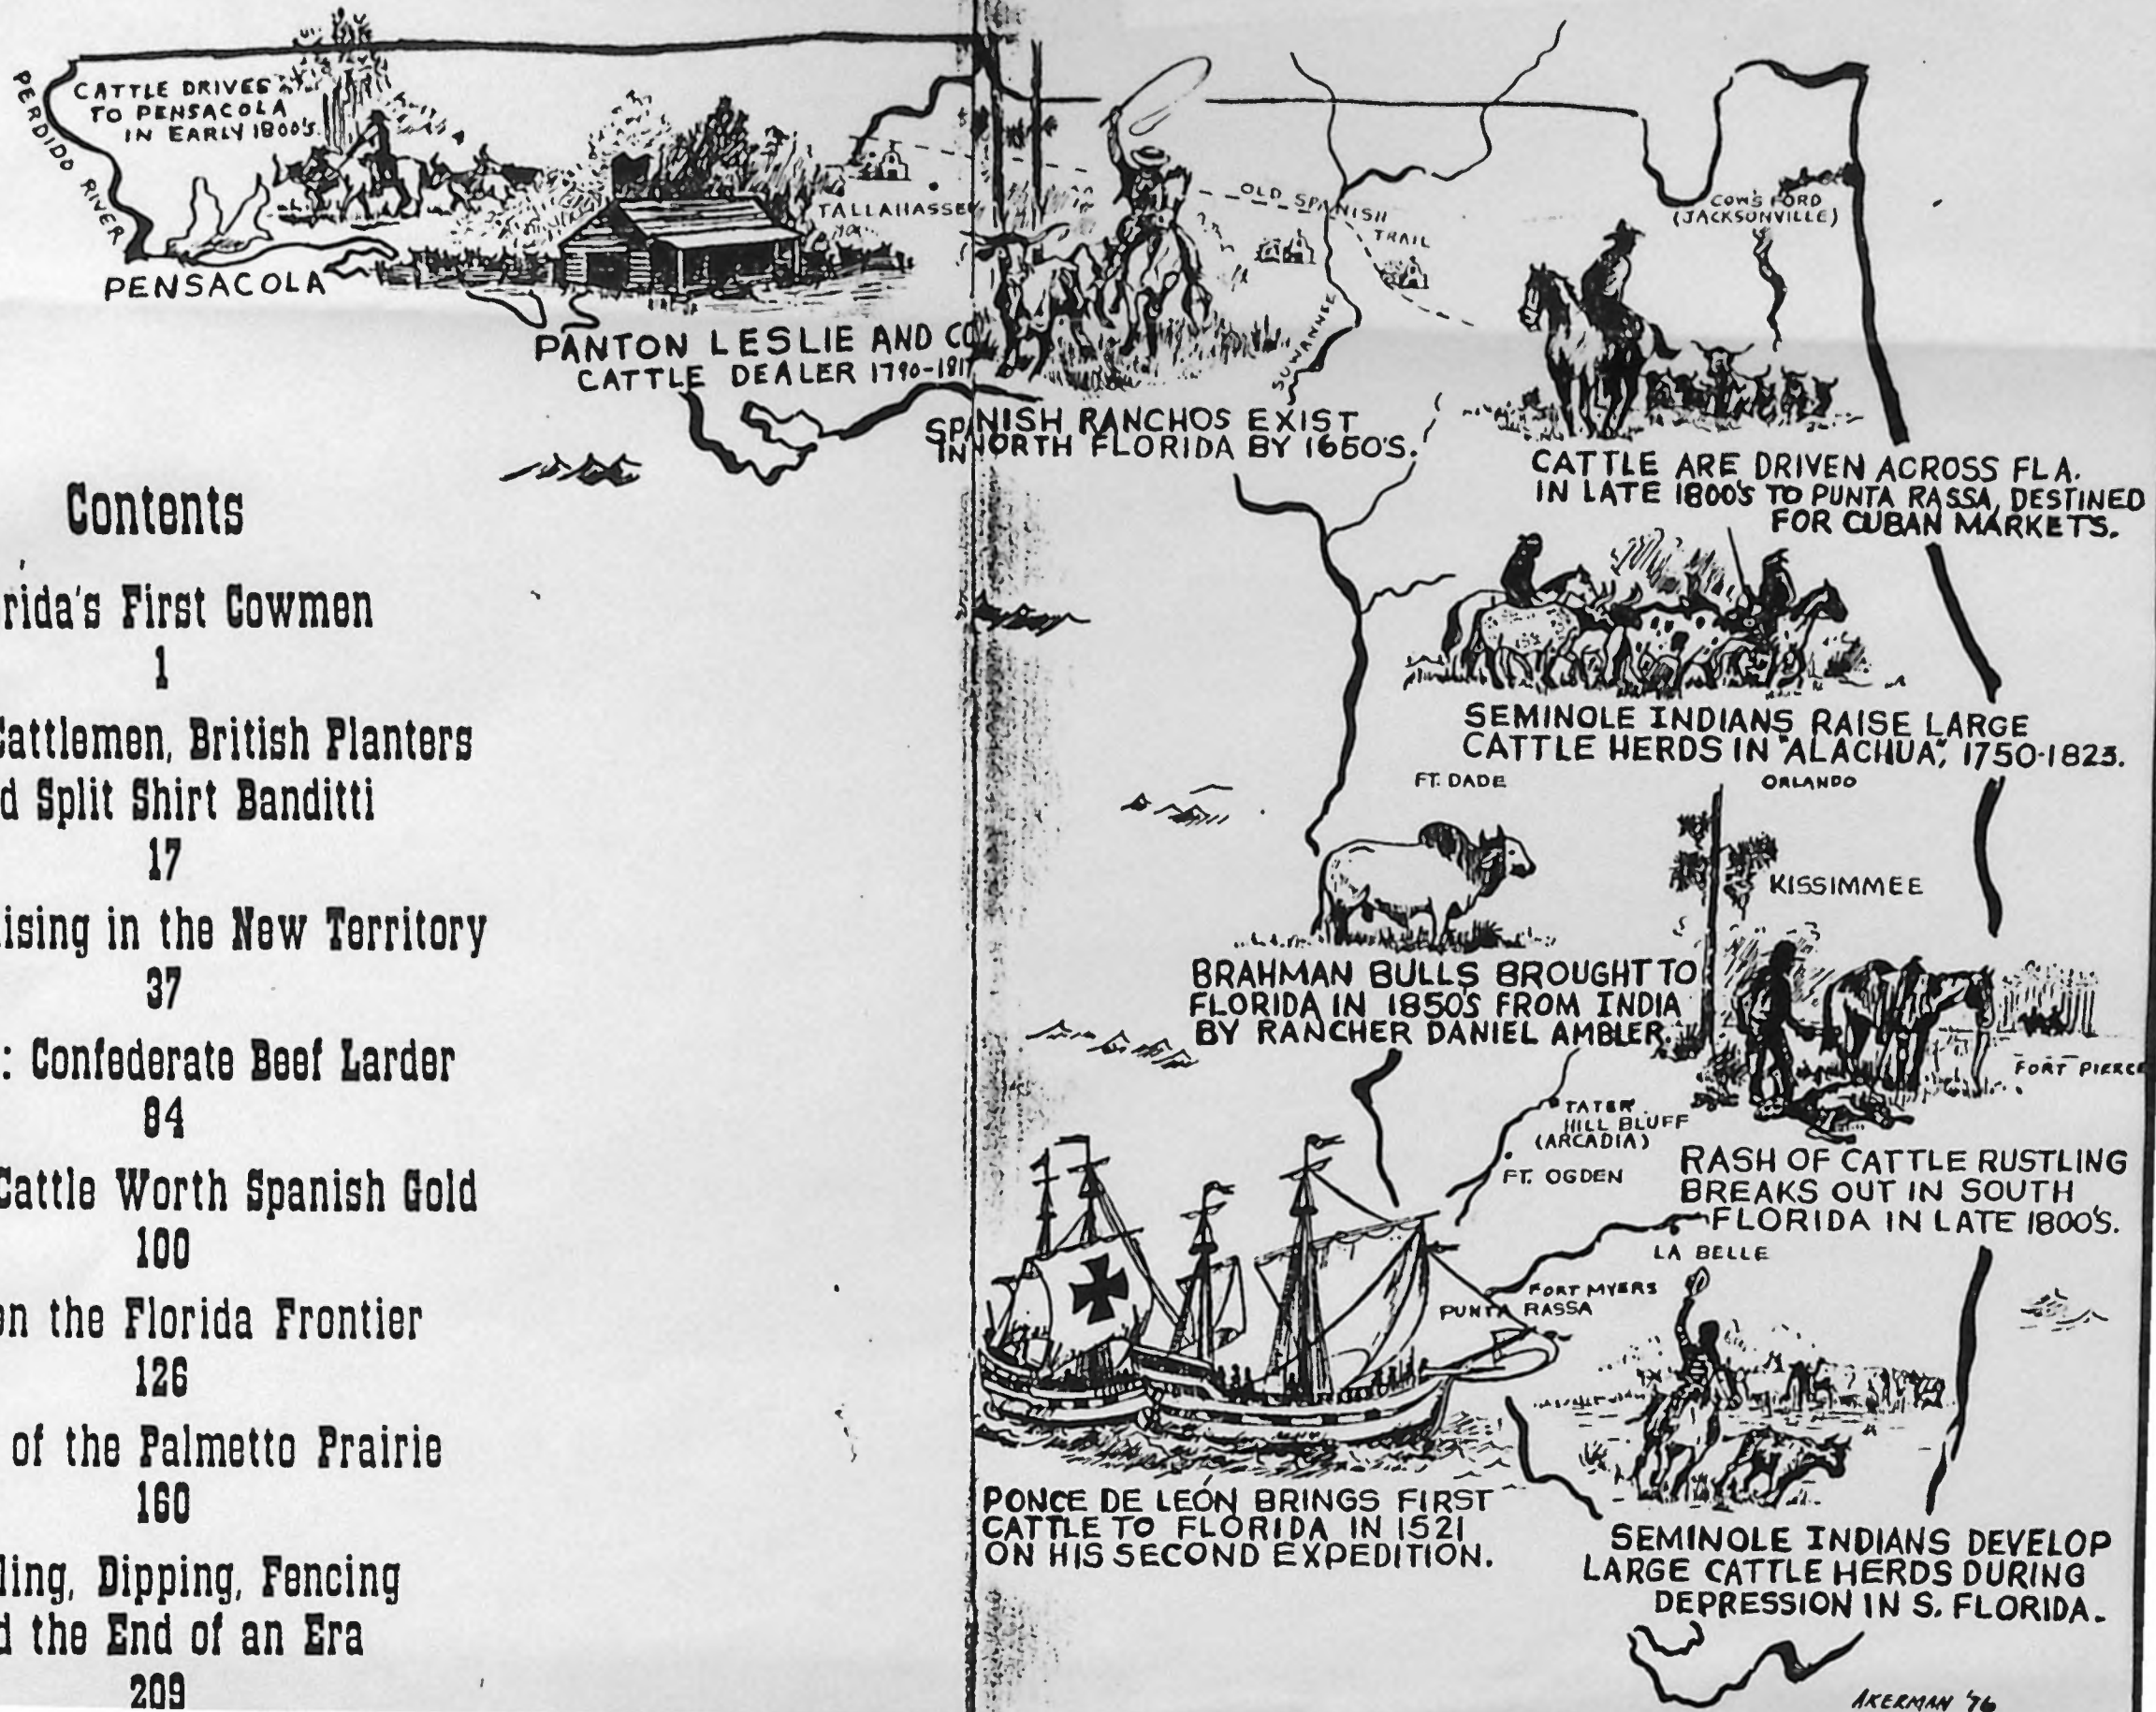 PERDIDO RIVER
CATTLE DRIVES
TO PENSACOLA
IN EARLY 1800'S.
PENSACOLA
TALLAHASSEE
PANTON LESLIE AND CO
CATTLE DEALER 1790-1817
OLD SPANISH
TRAIL
SUWANNEE
SPANISH RANCHOS EXIST
IN NORTH FLORIDA BY 1650'S.
COW'S FORD
(JACKSONVILLE)
CATTLE ARE DRIVEN ACROSS FLA.
IN LATE 1800'S TO PUNTA RASSA, DESTINED
FOR CUBAN MARKETS.
SEMINOLE INDIANS RAISE LARGE
CATTLE HERDS IN "ALACHUA", 1750-1823.
FT. DADE
ORLANDO
KISSIMMEE
BRAHMAN BULLS BROUGHT TO
FLORIDA IN 1850'S FROM INDIA
BY RANCHER DANIEL AMBLER.
FORT PIERCE
TATER
HILL BLUFF
(ARCADIA)
FT. OGDEN
RASH OF CATTLE RUSTLING
BREAKS OUT IN SOUTH
FLORIDA IN LATE 1800'S.
LA BELLE
FORT MYERS
PUNTA RASSA
PONCE DE LEÓN BRINGS FIRST
CATTLE TO FLORIDA IN 1521
ON HIS SECOND EXPEDITION.
SEMINOLE INDIANS DEVELOP
LARGE CATTLE HERDS DURING
DEPRESSION IN S. FLORIDA.
AKERMAN '76
Contents
rida's First Cowmen
1
Cattlemen, British Planters
d Split Shirt Banditti
17
ising in the New Territory
37
: Confederate Beef Larder
84
Cattle Worth Spanish Gold
100
on the Florida Frontier
126
of the Palmetto Prairie
160
ling, Dipping, Fencing
d the End of an Era
209